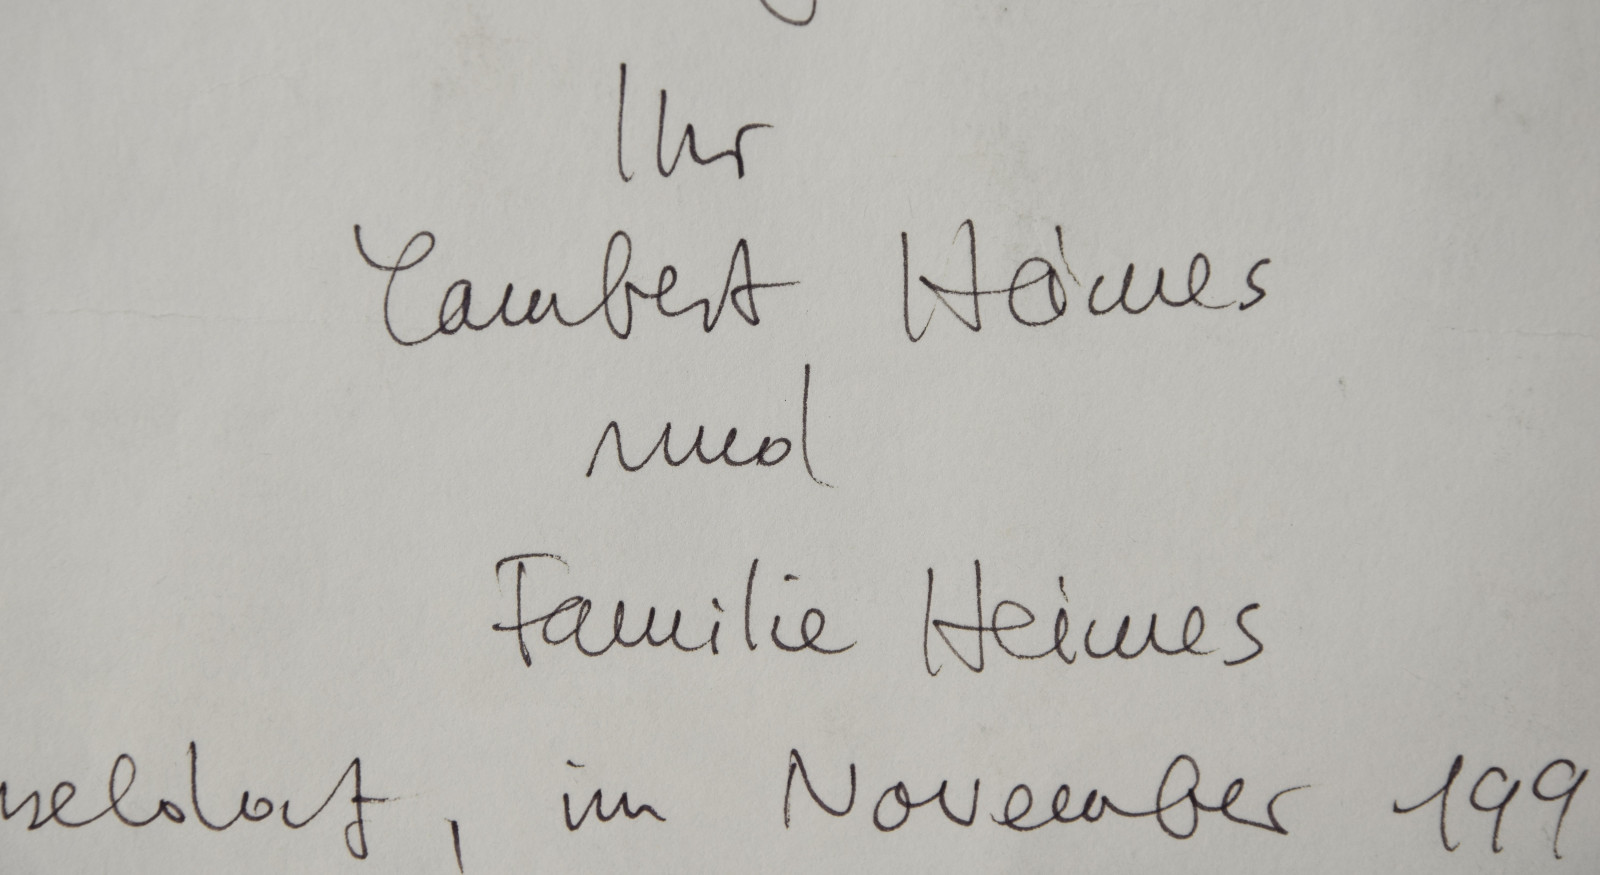 Ihr
Lambert Heimes
und
Familie Heimes
sseldorf, im November 199